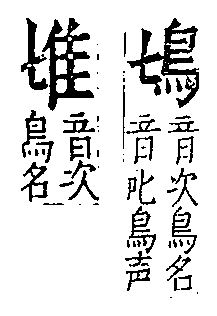 音次鳥名
音叱鳥声
音次
鳥名